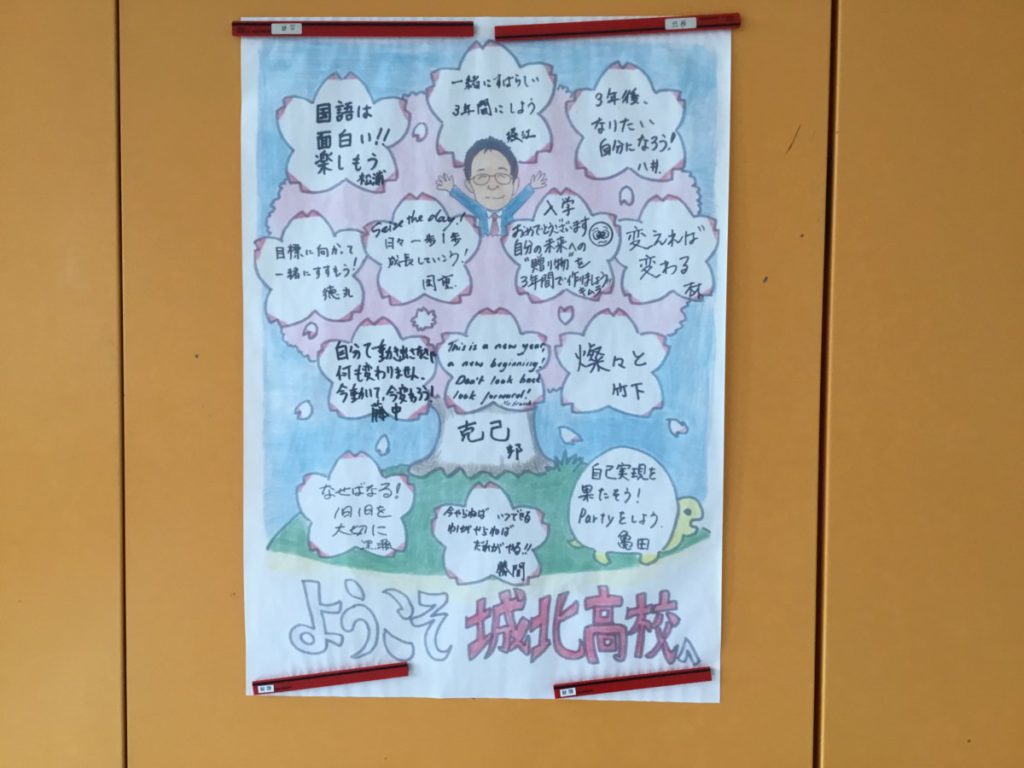 国語は
面白い!!
楽しもう
松浦
一緒にすばらしい
3年間にしよう
堀江
3年後、
なりたい
自分になろう!
八井
目標に向かって
一緒にすすもう!
徳丸
Seize the day!
日々一歩1歩
成長していこう!
入学
おめでとうございます
自分の未来への
"贈り物"を
3年間で作りましょう
キムラ
変えれば
変わる
自分で動き出さなければ
何も変わりません。
今動いて、今変わろう!
藤中
This is a new year,
a new beginning!
Don't look back
look forward!
燦々と
竹下
克己
なせばなる!
1日1日を
大切に
今やらねば いつできる
わしがやらねば
たれがやる!!
勝間
自己実現を
果たそう!
Partyをしよう。
亀田
ようこそ 城北高校へ